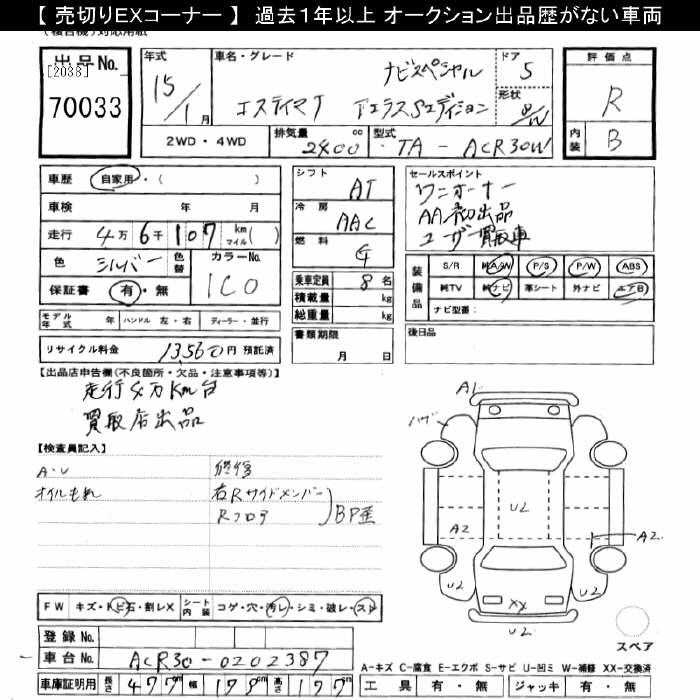 【 売切りEXコーナー 】 過去1年以上 オークション出品歴がない車両
出品No.
[2038]
70033
年式
15/1月
車名・グレード
ナビスペシャル
エスティマT アエラスSエディション
ドア
5
形状
評価点
R
内装
B
2WD・4WD
排気量 2400 cc
型式 TA - ACR30W
車歴 自家用・( )
車検 年 月
走行 4万6千107 km マイル( )
色 シルバー 色替
カラーNo. 1C0
保証書 有・無
シフト AT
冷房 AAC
燃料 G
乗車定員 8 名
積載量 kg
総重量 kg
書類期限
月 日
セールスポイント
ワンオーナー
AA初出品
ユーザー買取車
装備品
S/R 純A/W P/S P/W ABS
純TV 純ナビ 革シート 外ナビ エアB
ナビ型番:
後日品
モデル年式 年 ハンドル 左・右 ディーラー・並行
リサイクル料金 13,560円 預託済
【出品店申告欄(不良箇所・欠品・注意事項等)】
走行4万Km台
買取店出品
【検査員記入】
A・U
オイルもれ
修復
右Rサイドメンバー
Rフロア
BP歪
A1
ハゲ
U2
A2
A2
U2
U2
XX
U2
スペア
FW キズ・トビ石・割レX
シート内装 コゲ・穴・汚レ・シミ・破レ・スレ
登録No.
車台No. ACR30-0202387
車庫証明用 長さ 477cm 幅 179cm 高さ 177cm
A-キズ C-腐食 E-エクボ S-サビ U-凹ミ W-補修 XX-交換済
工具 有・無 ジャッキ 有・無